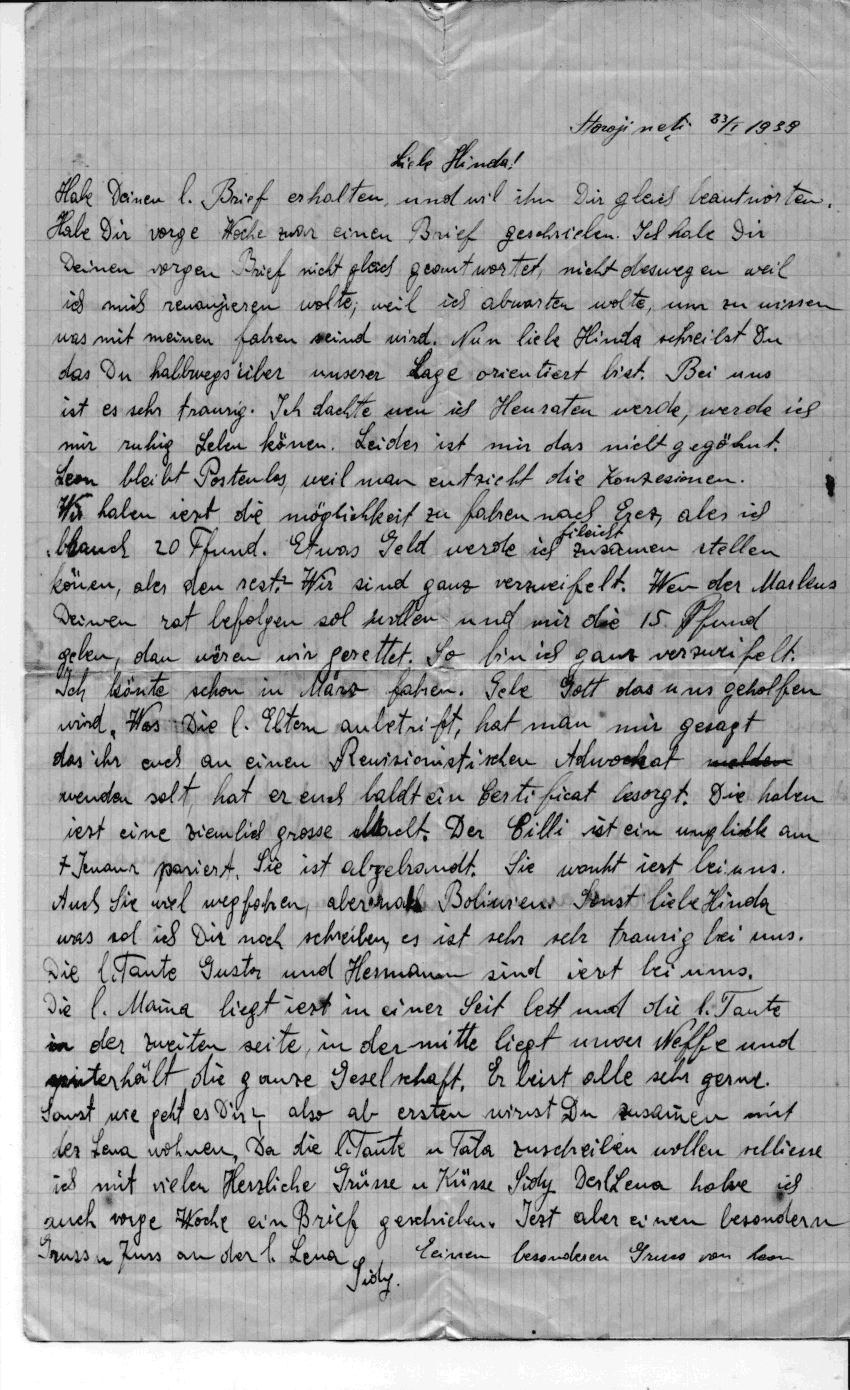 Storojineți 23/I 1939
Liebe Hinda!
Habe Deinen l. Brief erhalten, und wil ihn Dir gleich beantworten.
Habe Dir vorge Woche zwar einen Brief geschrieben. Ich habe Dir
Deinen vorgen Brief nicht gleich geantwortet, nicht deswegen weil
ich mich revangieren wolte, weil ich abwarten wolte, um zu wissen
was mit meinen fahren seind wird. Nun liebe Hinda schreibst Du
das Du halbwegs über unserer Lage orientiert bist. Bei uns
ist es sehr traurig. Ich dachte wen ich Heuraten werde, werde ich
mir ruhig Leben könen. Leider ist mir das nicht gegöhnt.
Leon bleibt Postenlos, weil man entzieht die Konzesionen.
Wir haben iezt die möglichkeit zu fahren nach Erez, aber ich
brauch 20 Pfund. Etwas Geld werde ich fileicht zusamen stellen
könen, aber den rest? Wir sind ganz verzweifelt. Wen der Markus
Deinen rat befolgen sol wollen und mir die 15 Pfund
geben, dan wären wir gerettet. So bin ich ganz verzweifelt.
Ich könte schon in März fahren. Gebe Gott das uns geholfen
wird. Was Die l. Eltern anbetrift, hat man mir gesagt
das ihr euch an einen Revisionistischen Adwockat
wenden solt, hat er euch baldt ein Certificat besorgt. Die haben
iezt eine ziemlich grosse Macht. Der Cilli ist ein unglück am
7 Jenaur pasiert. Sie ist abgebrandt. Sie wonht iezt bei uns.
Auch Sie wiel wegfahren, aber nach Boliwien. Sonst liebe Hinda
was sol ich Dir noch schreiben, es ist sehr sehr traurig bei uns.
Die l. Tante Gusta und Hermann sind iezt bei uns.
Die l. Mama liegt iezt in einer Seit bett und die l. Tante
in der zweiten seite, in der mitte liegt unser Neffe und
unterhält die ganze Geselschaft. Er beist alle sehr gerne.
Sonst wie geht es Dir, also ab ersten wirst Du zusamen mit
der Lena wohnen. Da die l. Tante u Tata zuschreiben wollen schliesse
ich mit vielen Herzliche Grüsse u Küsse Sidy Der l Lena habe ich
auch vorge Woche ein Brief geschrieben. Iezt aber einen besondern
Gruss u Kuss an der l. Lena Eeinen besonderen Gruss von Leon
Sidy.